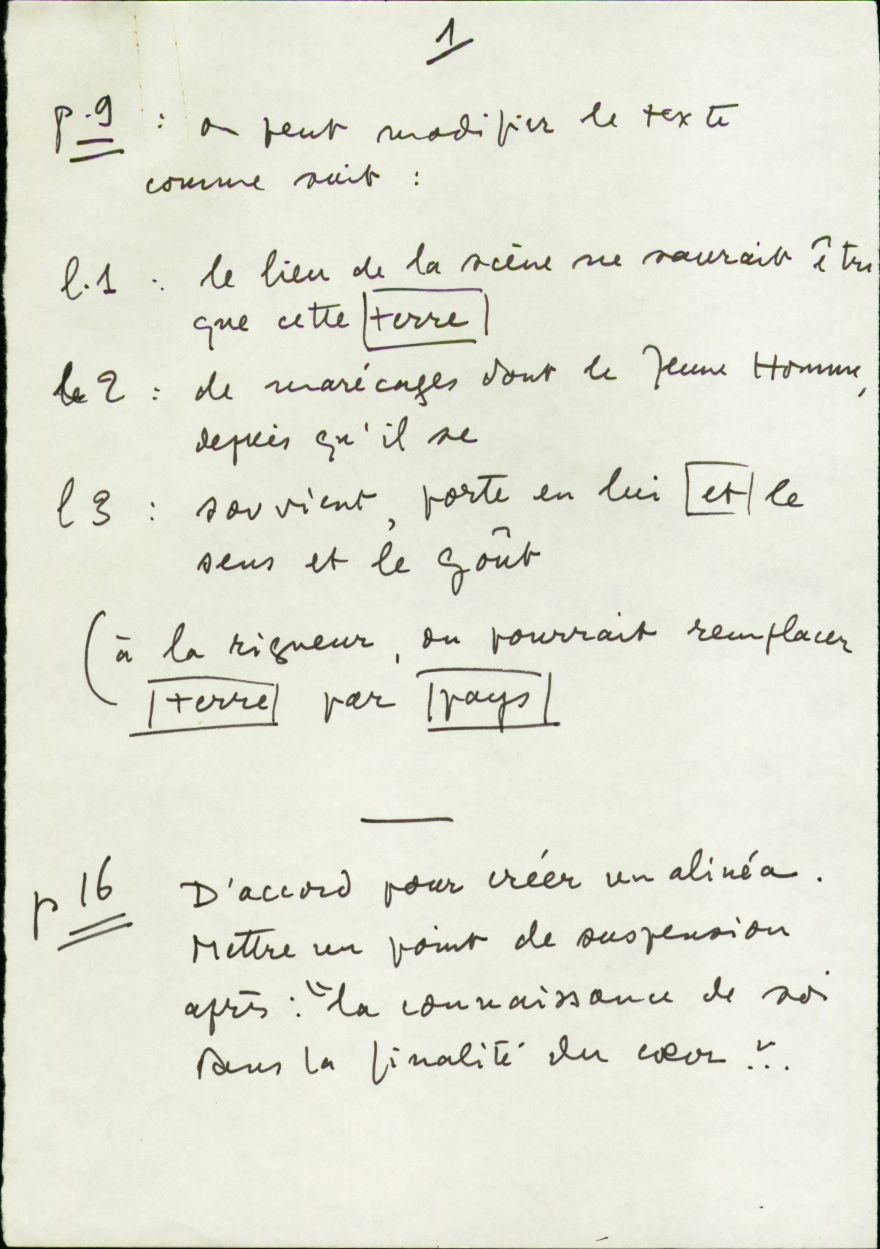 1
p.9 : on peut modifier le texte
comme suit :
l.1 : le lieu de la scène ne saurait être
que cette terre
l 2 : de marécages dont le Jeune Homme,
depuis qu'il se
l 3 : souvient, porte en lui et le
sens et le goût
(à la rigueur, on pourrait remplacer
terre par pays
p 16 D'accord pour créer un alinéa.
Mettre un point de suspension
après : "la connaissance de soi
dans la finalité du cœur"...